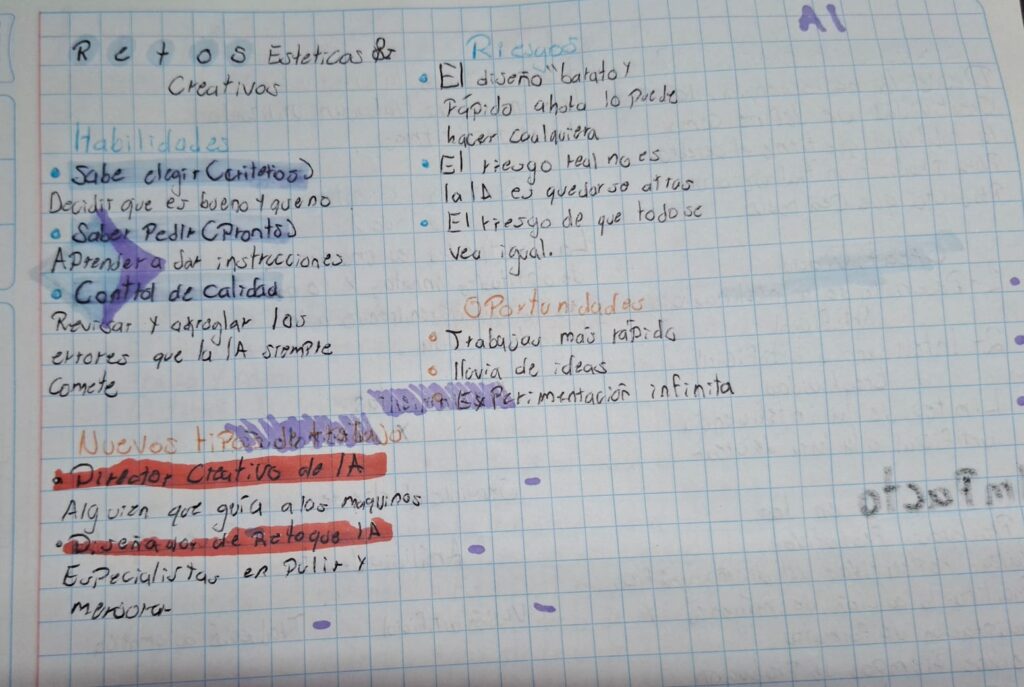 AI
Retos Esteticas &
Creativos
Habilidades
• Sabe elegir (criterios)
Decidir que es bueno y que no
• Saber Pedir (Pronts)
Aprender a dar instrucciones
• Control de calidad
Revisar y arroglar los
errores que la IA siempre
comete
Nuevos tipos de trabajo
• Director Creativo de IA
Alguien que guía a las maquinas
• Diseñador de Retoque IA
Especialistas en Pulir y
mersorar
Riesgos
• El diseño "barato y
rápido ahora lo puede
hacer caulquiera
• El riesgo real no es
la IA es quedarse atras
• El riesgo de que todo se
vea igual.
Oportunidades
• Trabajas más rápido
• lluvia de ideas
• Experimentación infinita